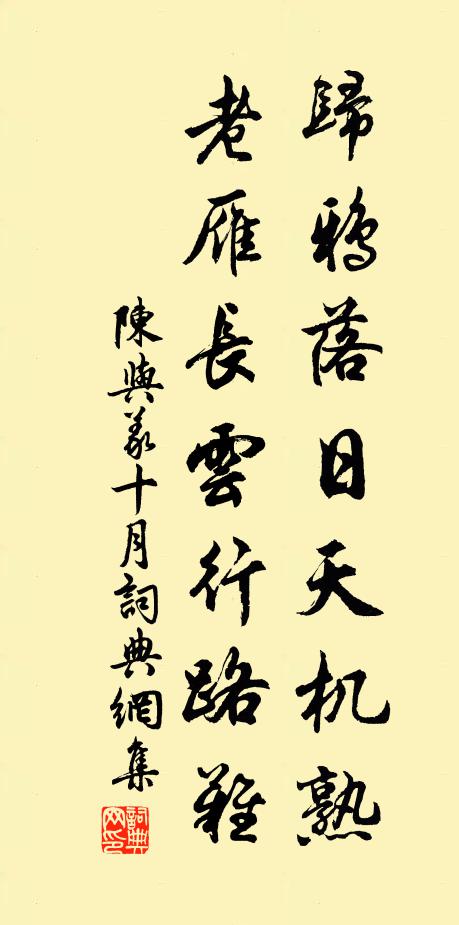 歸鴉落日天机熟
老雁長雲行路難
陳與義十月詞典網集
詞典网印